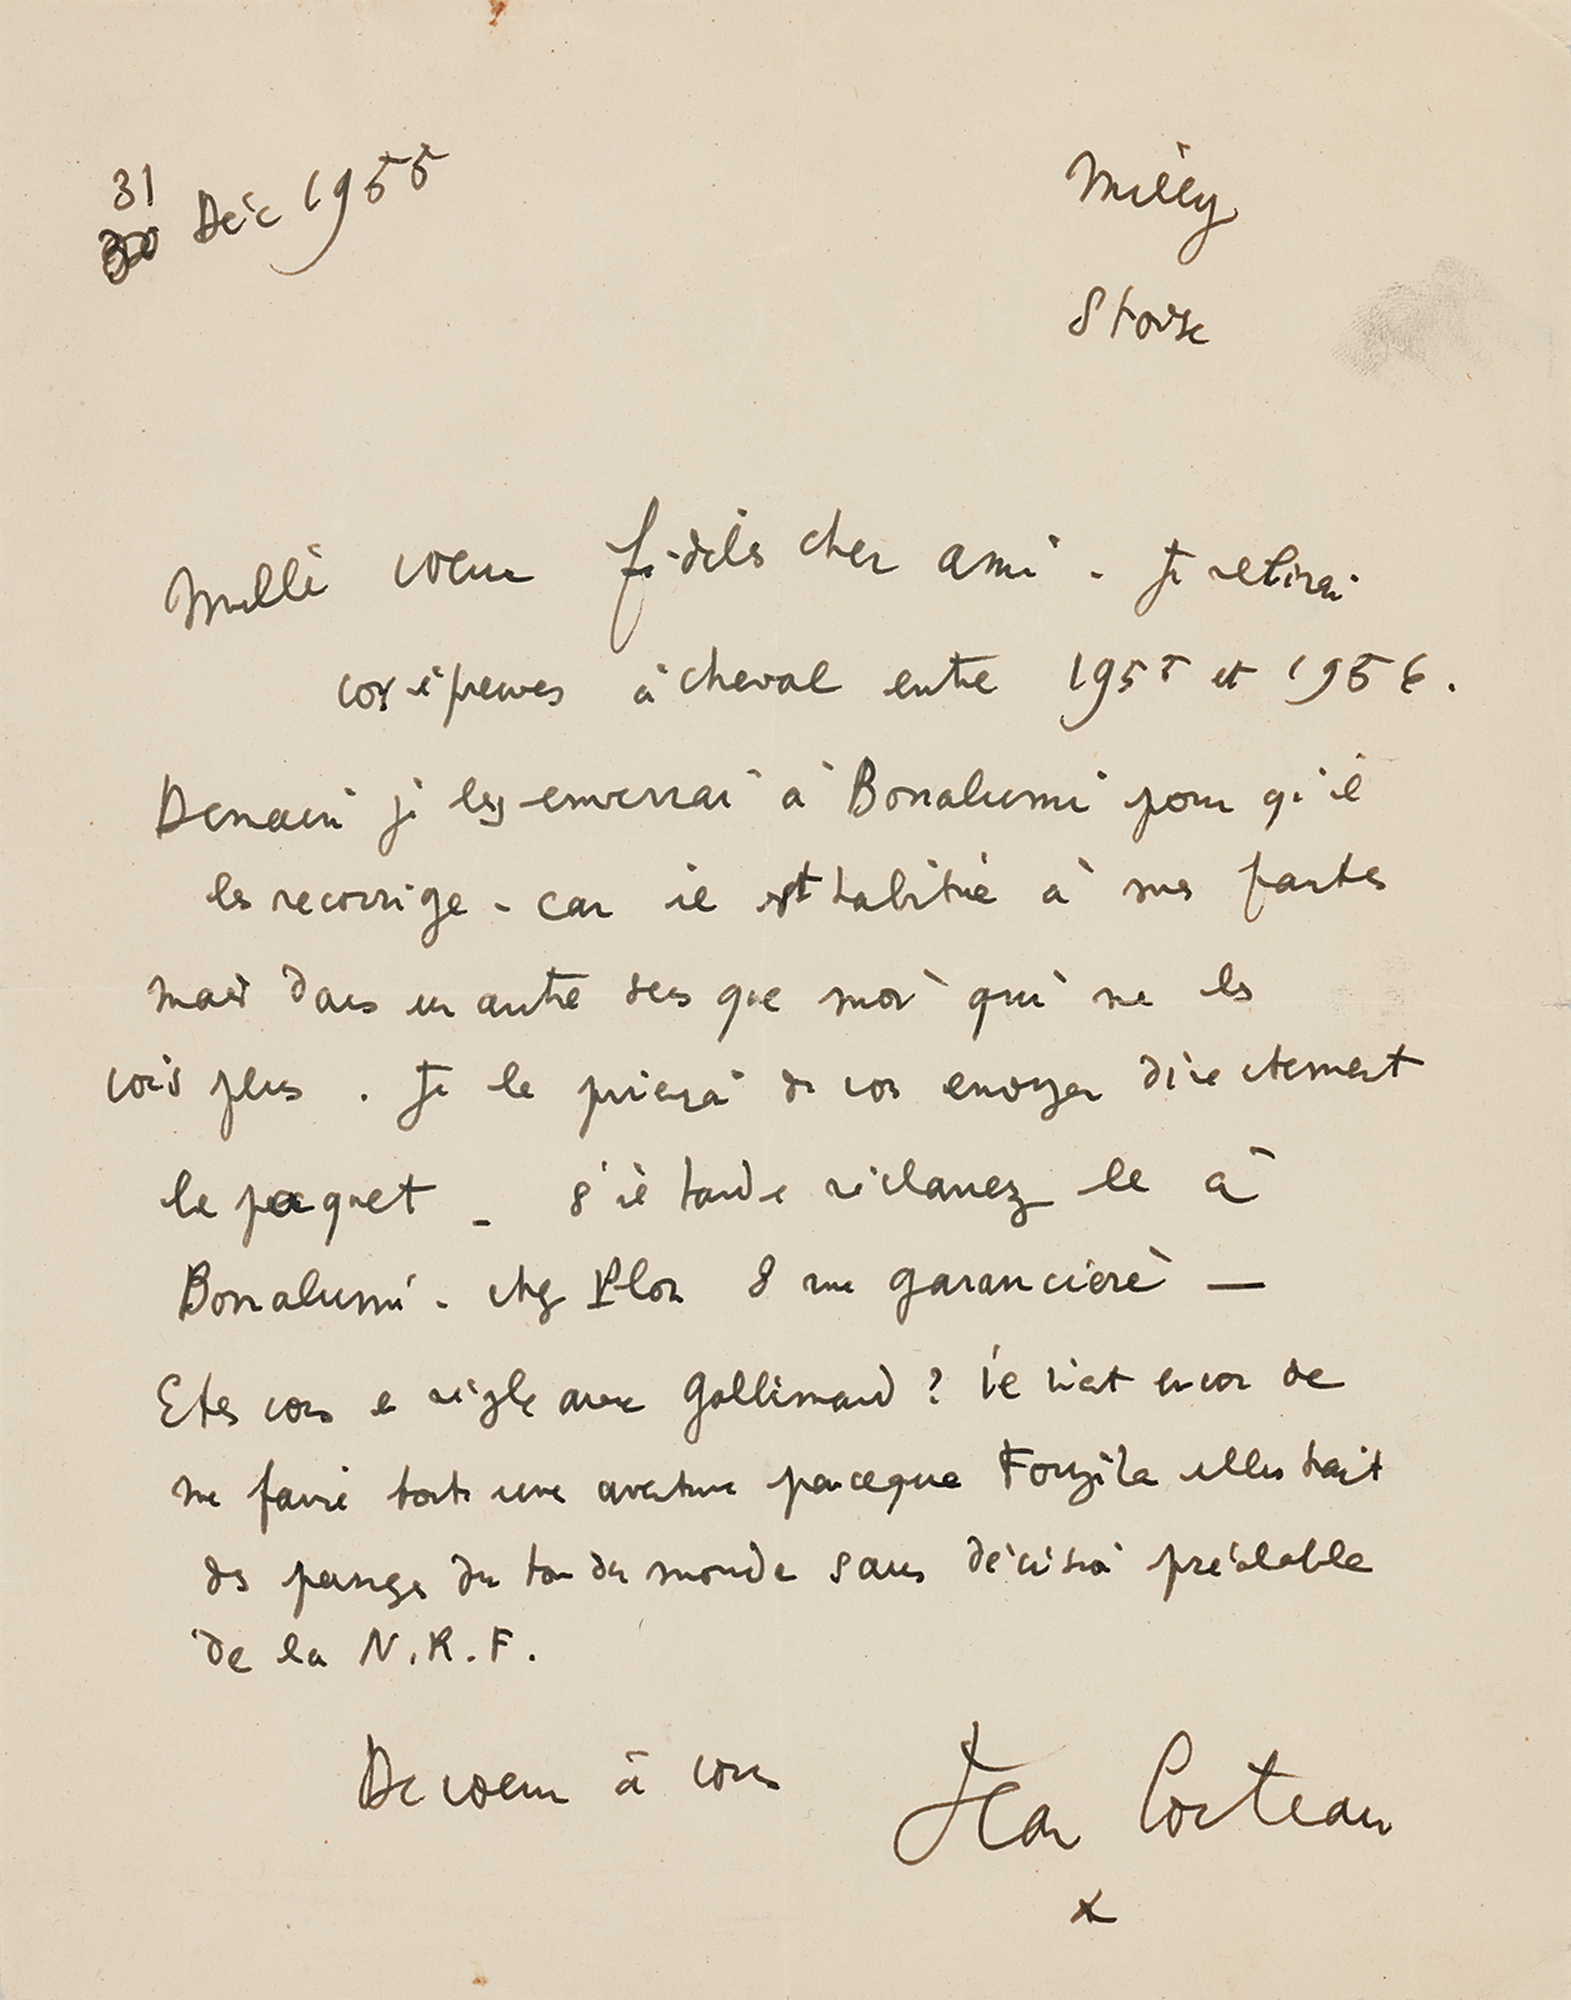 31
30 Déc 1955
Milly
S et Oise
Mille coeur fidèle cher ami. Je relirai
vos épreuves à cheval entre 1955 et 1956.
Demain je les enverrai à Bonalumi pour qu'il
les recorrige - car il est habitué à mes fautes
mais dans un autre sens que moi qui ne les
vois plus. Je le prierai de vous envoyer directement
le paquet - s'il tarde réclamez le à
Bonalumi - chez Plon 8 rue Garancière —
Etes vous en règle avec Gallimard ? Il vient encor de
me faire toute une aventure parceque illustrait
des pages du tour du monde sans décision préalable
de la N.R.F.
De coeur à vous
Jean Cocteau